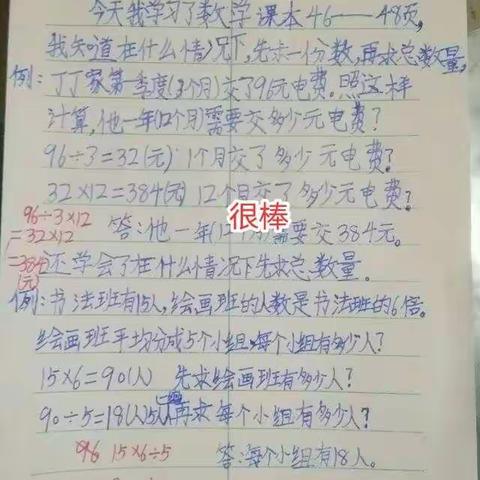 今天我学习了数学课本46——48页,
我知道在什么情况下,先求一份数,再求总数量,
例:丁丁家第一季度(3个月)交了96元电费。照这样
计算,他一年(12个月)需要交多少元电费?
96÷3=32(元) 1个月交了多少元电费?
32×12=384(元) 12个月交了多少元电费?
很棒
96÷3×12
=32×12
=384
(元)
答:他一年(12个月)需要交384元。
还学会了在什么情况下先求总数量。
例:书法班有15人,绘画班的人数是书法班的6倍。
绘画班平均分成5个小组,每个小组有多少人?
15×6=90(人) 先求绘画班有多少人?
90÷5=18(人) 再求每个小组有多少人?
15×6÷5 答:每个小组有18人。